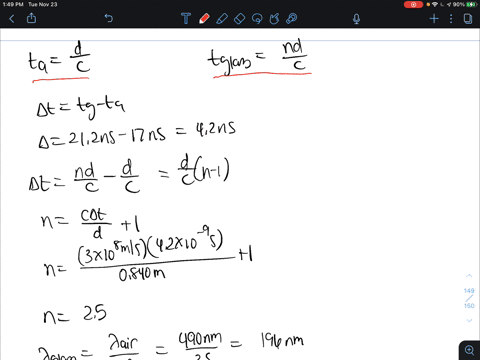 1:49 PM Tue Nov 23
90%
ta = d/c    tglass = nd/c
Δt = tg - ta
Δ = 21.2ns - 17ns = 4.2ns
Δt = nd/c - d/c = d/c (n-1)
n = cΔt/d + 1
n = (3×10⁸m/s)(4.2×10⁻⁹s)/0.840m + 1
n = 2.5
λglass = λair/ = 490nm/2.5 = 196nm
149
/
150